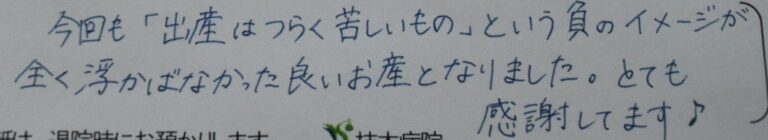 今回も「出産はつらく苦しいもの」という負のイメージが
全く浮かばなかった良いお産となりました。とても
感謝してます♪
退院時にお預かりします
病院